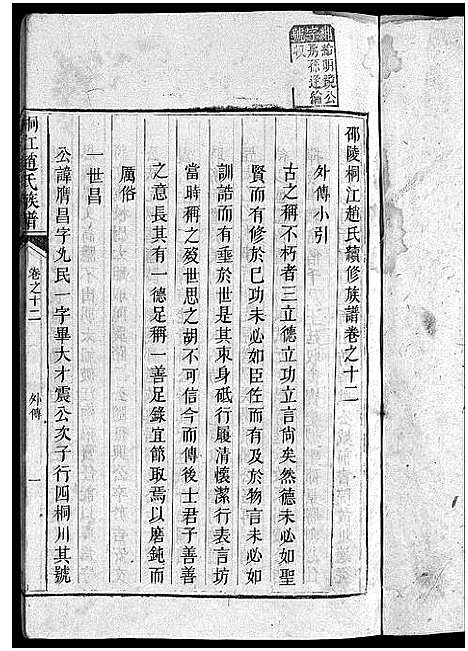 邵陵桐江趙氏續修族譜卷之十二
外傳小引
古之稱不朽者三立德立功立言尚矣然德未必如聖
賢而有修於已功未必如臣佐而有及於物言未必如
訓誥而有垂於世是其束身砥行履清懷潔行表言坊
當時稱之後世思之胡不可信今而傳後士君子善善
之意長其有一德足稱一善足錄宜節取焉以磨鈍而
厲俗
一世昌
公諱膺昌字允民一字畢大才震公次子行四桐川其號
桐江趙氏族譜
卷之十二
外傳
一
字號